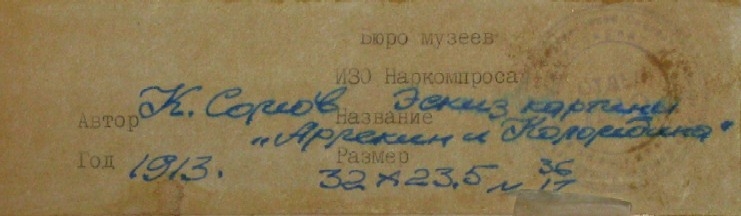 Бюро музеев
ИЗО Наркомпроса
Автор К. Сомов Название Эскиз картины
„Арлекин и Коломбина"
Год 1913. Размер
32 x 23.5 N 36/17